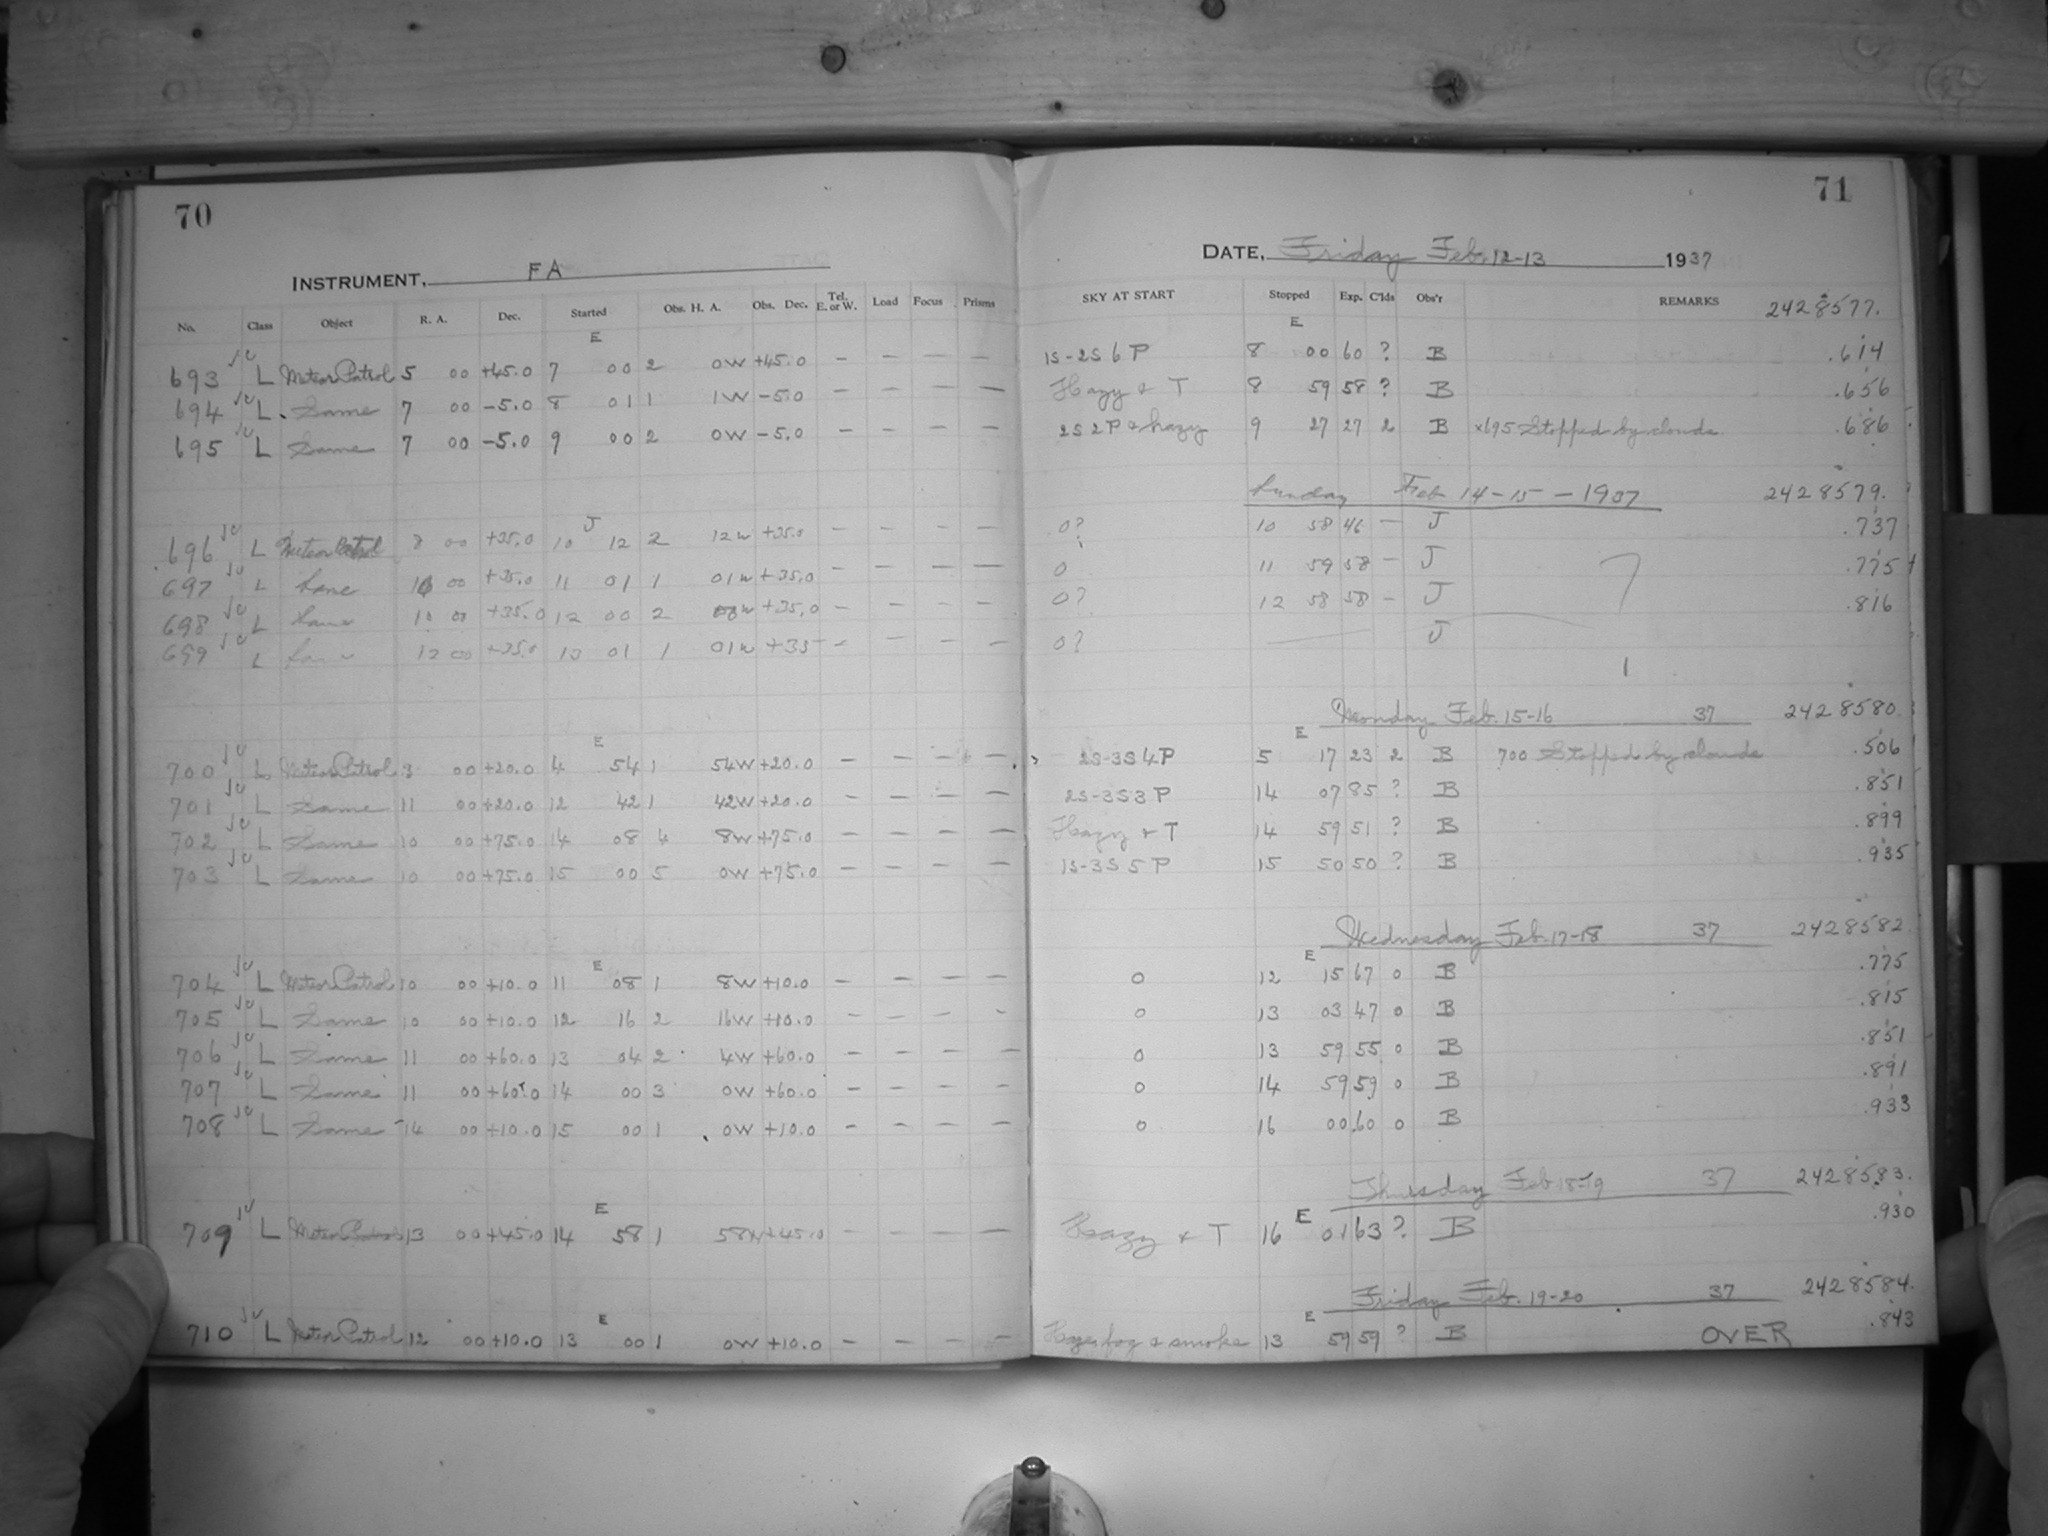 70
INSTRUMENT, FA
No. Class Object R. A. Dec. Started Obs. H. A. Obs. Dec. Tel. E. or W. Load Focus Prisms
E
693 L Meteor Patrol 5 00 +45.0 7 00 2 0W +45.0 — — — —
694 L Same 7 00 -5.0 8 01 1 1W -5.0 — — — —
695 L Same 7 00 -5.0 9 00 2 0W -5.0 — — — —
J
696 L Meteor Patrol 8 00 +35.0 10 12 2 12w +35.0 — — — —
697 L Same 10 00 +35.0 11 01 1 01w +35.0 — — — —
698 L Same 10 00 +35.0 12 00 2 00w +35.0 — — — —
699 L Same 12 00 +35.0 13 01 1 01w +35 — — — —
E
700 L Meteor Patrol 3 00 +20.0 4 54 1 54W +20.0 — — — —
701 L Same 11 00 +20.0 12 42 1 42W +20.0 — — — —
702 L Same 10 00 +75.0 14 08 4 8W +75.0 — — — —
703 L Same 10 00 +75.0 15 00 5 0W +75.0 — — — —
E
704 L Meteor Patrol 10 00 +10.0 11 08 1 8W +10.0 — — — —
705 L Same 10 00 +10.0 12 16 2 16W +10.0 — — — —
706 L Same 11 00 +60.0 13 04 2 4W +60.0 — — — —
707 L Same 11 00 +60.0 14 00 3 0W +60.0 — — — —
708 L Same 14 00 +10.0 15 00 1 0W +10.0 — — — —
E
709 L Meteor Patrol 13 00 +45.0 14 58 1 58W +45.0 — — — —
E
710 L Meteor Patrol 12 00 +10.0 13 00 1 0W +10.0 — — — —
71
DATE, Friday Feb. 12-13 1937
SKY AT START Stopped Exp. C'lds Obs'r REMARKS 2428577.
E
1S-2S 6 P 8 00 60 ? B .614
Hazy & T 8 59 58 ? B .656
2S 2P & hazy 9 27 27 2 B ×695 Stopped by clouds .686
Sunday Feb 14-15 - 1937 2428579.
0? 10 58 46 — J .737
0 11 59 58 — J .775
0? 12 58 58 — J .816
0? J
Monday Feb. 15-16 37 2428580.
E
2S-3S 4P 5 17 23 2 B 700 Stopped by clouds .506
2S-3S 3 P 14 07 85 ? B .851
Hazy & T 14 59 51 ? B .899
1S-3S 5 P 15 50 50 ? B .935
Wednesday Feb. 17-18 37 2428582.
E
0 12 15 67 0 B .775
0 13 03 47 0 B .815
0 13 59 55 0 B .851
0 14 59 59 0 B .891
0 16 00 60 0 B .933
Thursday Feb 18-19 37 2428583.
E
Hazy & T 16 01 63 ? B .930
Friday Feb. 19-20 37 2428584.
E
fog & smoke 13 59 59 ? B OVER .843